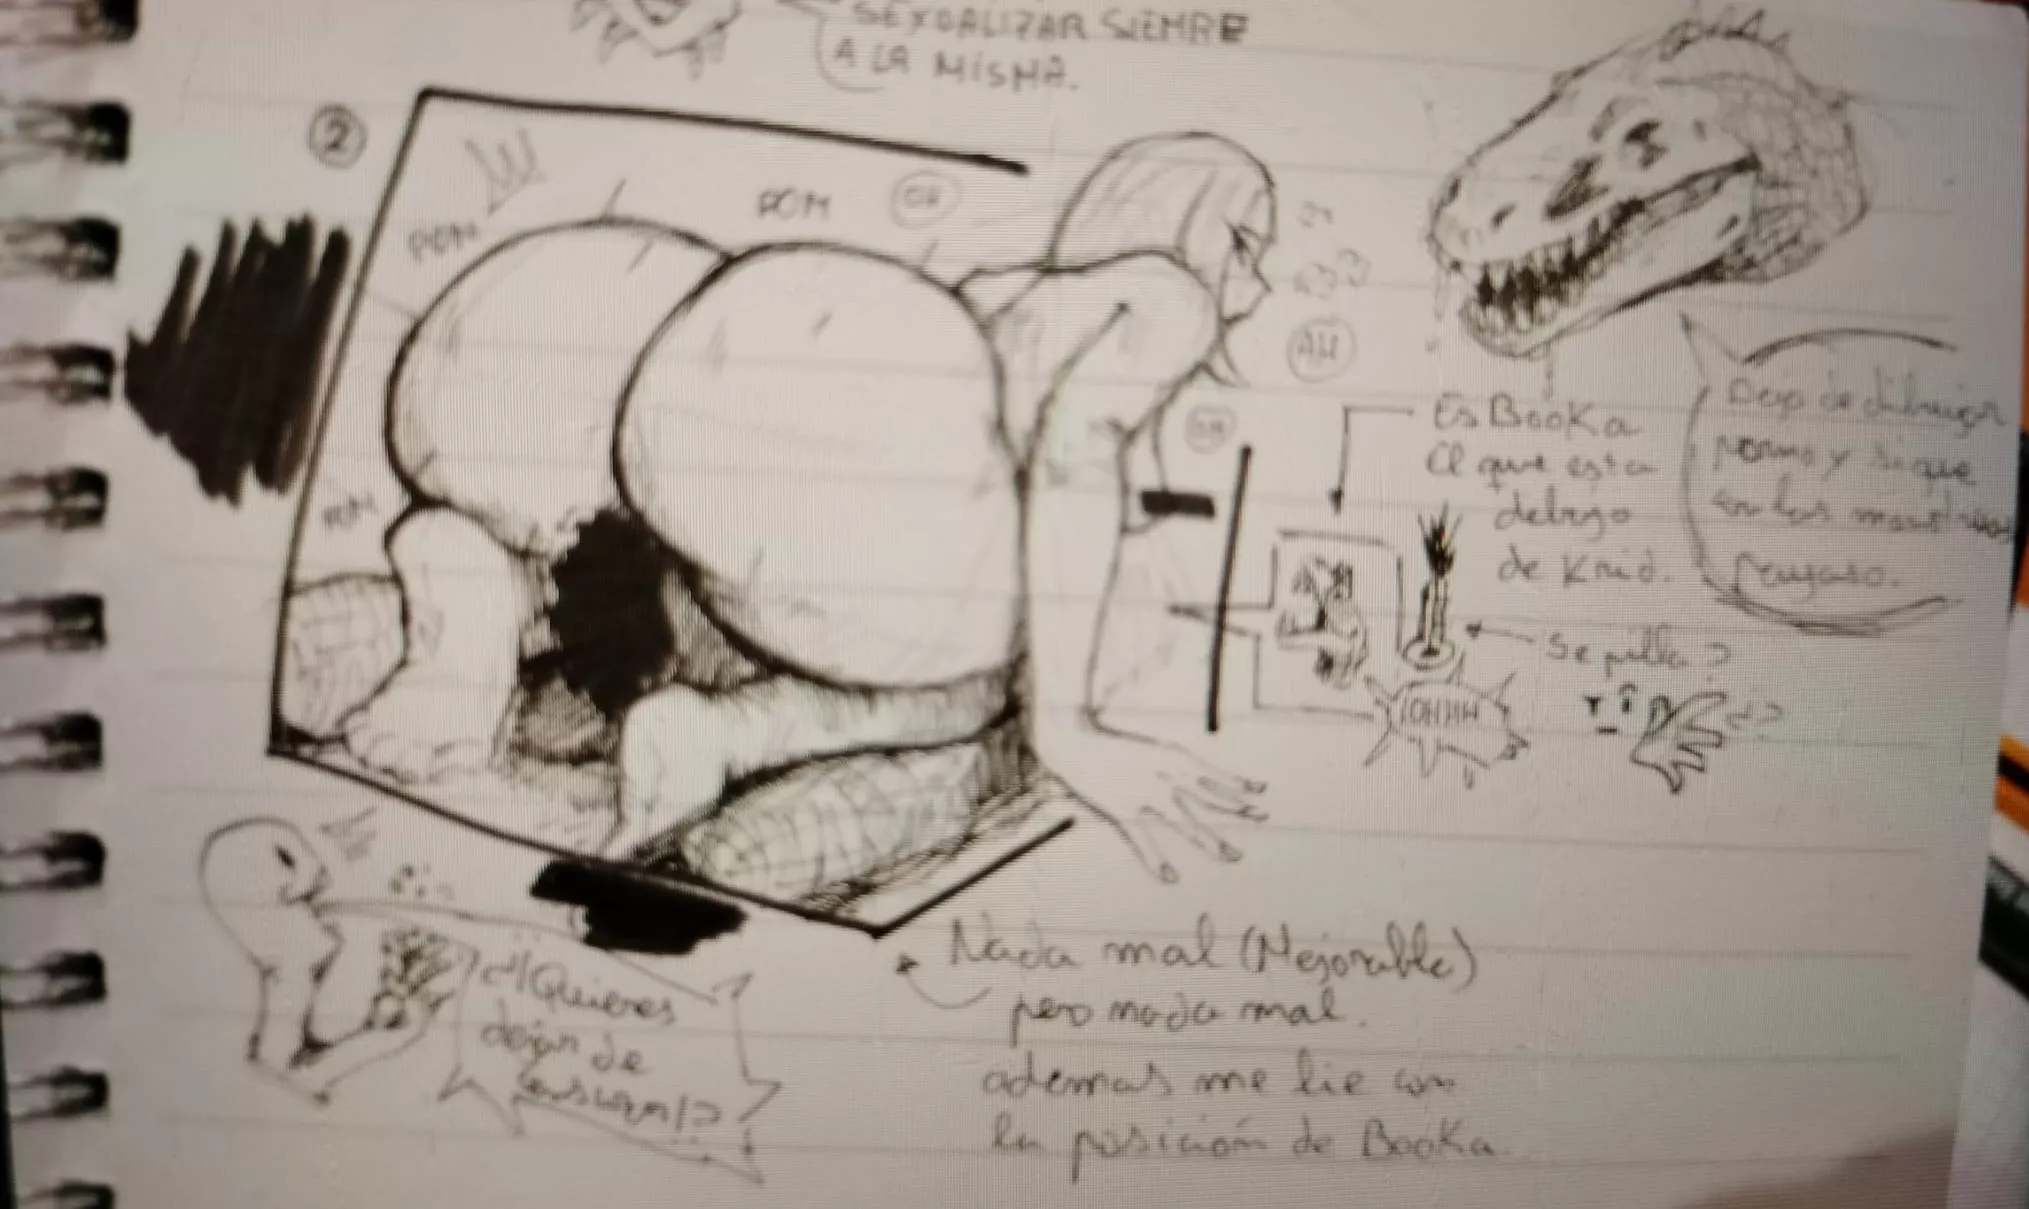 SEXUALIZAR SIEMPRE
A LA MISMA.
2
POM
POM
OH
AH
POM
Es Booka
el que esta
debajo
de Knid.
Deja de dibujar
porno y sigue
con los monstruos
payaso.
Se pilla?
¿¡Quieres
dejar de
censurar!?
Nada mal (Mejorable)
pero nada mal.
ademas me lie con
la posición de Booka.